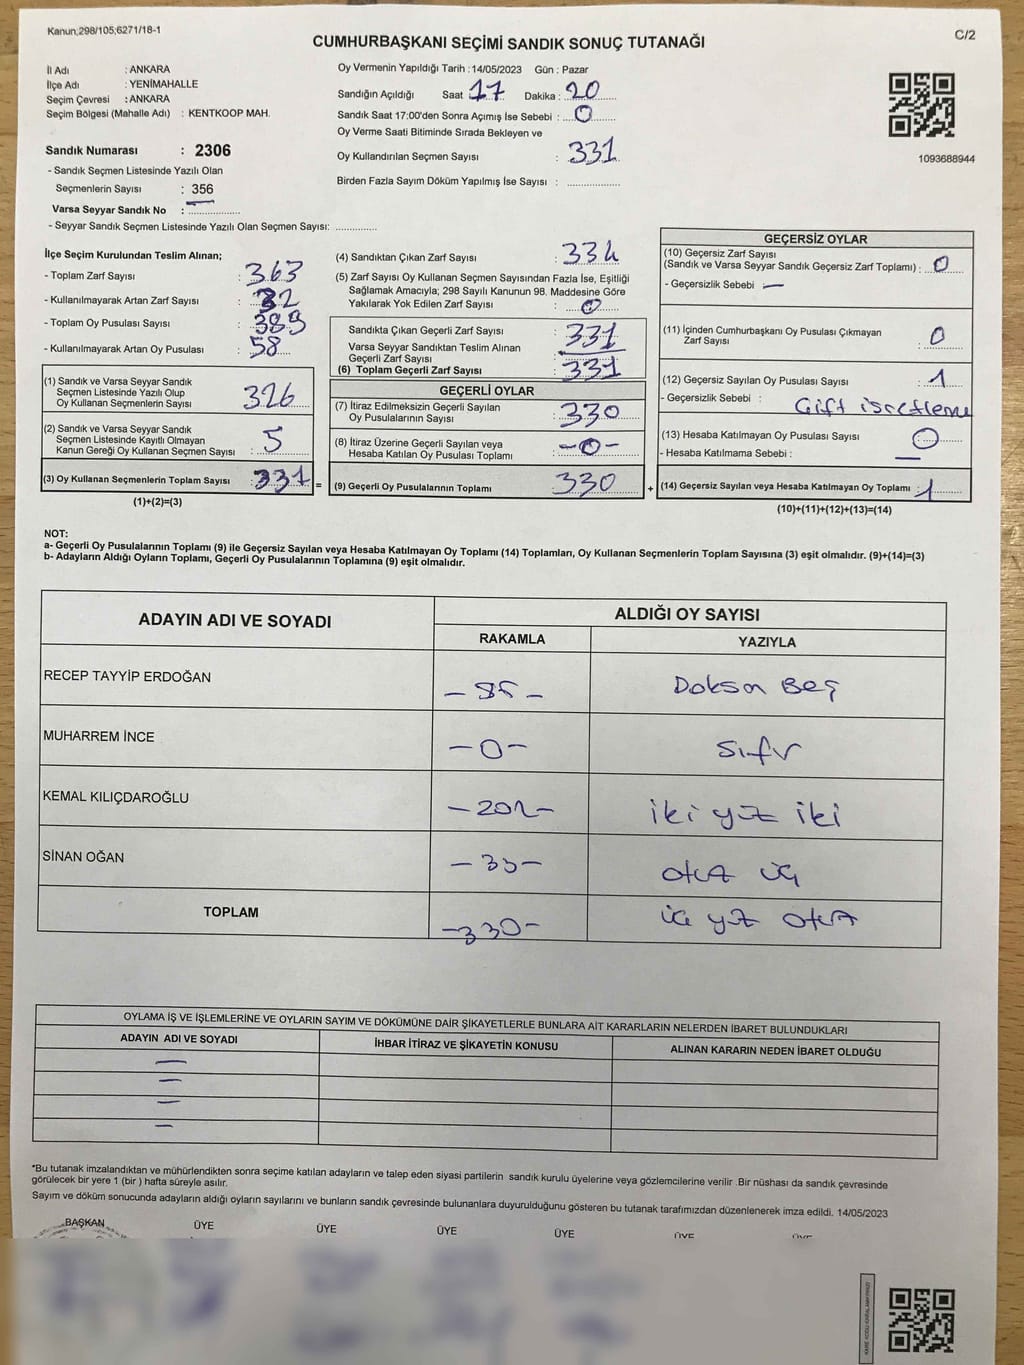 Kanun;298/105;6271/18-1
C/2
CUMHURBAŞKANI SEÇİMİ SANDIK SONUÇ TUTANAĞI
İl Adı : ANKARA
İlçe Adı : YENİMAHALLE
Seçim Çevresi : ANKARA
Seçim Bölgesi (Mahalle Adı) : KENTKOOP MAH.
Sandık Numarası : 2306
- Sandık Seçmen Listesinde Yazılı Olan
Seçmenlerin Sayısı : 356
Varsa Seyyar Sandık No :
- Seyyar Sandık Seçmen Listesinde Yazılı Olan Seçmen Sayısı:
Oy Vermenin Yapıldığı Tarih : 14/05/2023 Gün : Pazar
Sandığın Açıldığı Saat 17 Dakika : 20
Sandık Saat 17:00'den Sonra Açımış İse Sebebi : 0
Oy Verme Saati Bitiminde Sırada Bekleyen ve
Oy Kullandırılan Seçmen Sayısı : 331
Birden Fazla Sayım Döküm Yapılmış İse Sayısı :
1093688944
İlçe Seçim Kurulundan Teslim Alınan;
- Toplam Zarf Sayısı : 363
- Kullanılmayarak Artan Zarf Sayısı : 32
- Toplam Oy Pusulası Sayısı : 389
- Kullanılmayarak Artan Oy Pusulası : 58
(1) Sandık ve Varsa Seyyar Sandık
Seçmen Listesinde Yazılı Olup
Oy Kullanan Seçmenlerin Sayısı : 326
(2) Sandık ve Varsa Seyyar Sandık
Seçmen Listesinde Kayıtlı Olmayan
Kanun Gereği Oy Kullanan Seçmen Sayısı : 5
(3) Oy Kullanan Seçmenlerin Toplam Sayısı : 331 =
(1)+(2)=(3)
(4) Sandıktan Çıkan Zarf Sayısı :
(5) Zarf Sayısı Oy Kullanan Seçmen Sayısından Fazla İse, Eşitliği
Sağlamak Amacıyla; 298 Sayılı Kanunun 98. Maddesine Göre
Yakılarak Yok Edilen Zarf Sayısı : 0
Sandıkta Çıkan Geçerli Zarf Sayısı : 331
Varsa Seyyar Sandıktan Teslim Alınan
Geçerli Zarf Sayısı : -
(6) Toplam Geçerli Zarf Sayısı : 331
GEÇERLİ OYLAR
(7) İtiraz Edilmeksizin Geçerli Sayılan
Oy Pusulalarının Sayısı : 330
(8) İtiraz Üzerine Geçerli Sayılan veya
Hesaba Katılan Oy Pusulası Toplamı : -0-
(9) Geçerli Oy Pusulalarının Toplamı 330 +
GEÇERSİZ OYLAR
(10) Geçersiz Zarf Sayısı
(Sandık ve Varsa Seyyar Sandık Geçersiz Zarf Toplamı) : 0
- Geçersizlik Sebebi —
(11) İçinden Cumhurbaşkanı Oy Pusulası Çıkmayan
Zarf Sayısı : 0
(12) Geçersiz Sayılan Oy Pusulası Sayısı : 1
- Geçersizlik Sebebi : Çift işretleme
(13) Hesaba Katılmayan Oy Pusulası Sayısı : 0
- Hesaba Katılmama Sebebi : —
(14) Geçersiz Sayılan veya Hesaba Katılmayan Oy Toplamı : 1
(10)+(11)+(12)+(13)=(14)
NOT:
a- Geçerli Oy Pusulalarının Toplamı (9) ile Geçersiz Sayılan veya Hesaba Katılmayan Oy Toplamı (14) Toplamları, Oy Kullanan Seçmenlerin Toplam Sayısına (3) eşit olmalıdır. (9)+(14)=(3)
b- Adayların Aldığı Oyların Toplamı, Geçerli Oy Pusulalarının Toplamına (9) eşit olmalıdır.
ADAYIN ADI VE SOYADI
ALDIĞI OY SAYISI
RAKAMLA YAZIYLA
RECEP TAYYİP ERDOĞAN - 95 - Doksan Beş
MUHARREM İNCE -0- Sıfır
KEMAL KILIÇDAROĞLU -202- iki yüz iki
SİNAN OĞAN -33- otuz üç
TOPLAM -330- üç yüz otuz
OYLAMA İŞ VE İŞLEMLERİNE VE OYLARIN SAYIM VE DÖKÜMÜNE DAİR ŞİKAYETLERLE BUNLARA AİT KARARLARIN NELERDEN İBARET BULUNDUKLARI
ADAYIN ADI VE SOYADI İHBAR İTİRAZ VE ŞİKAYETİN KONUSU ALINAN KARARIN NEDEN İBARET OLDUĞU
—
—
—
—
*Bu tutanak imzalandıktan ve mühürlendikten sonra seçime katılan adayların ve talep eden siyasi partilerin sandık kurulu üyelerine veya gözlemcilerine verilir .Bir nüshası da sandık çevresinde
görülecek bir yere 1 (bir ) hafta süreyle asılır.
Sayım ve döküm sonucunda adayların aldığı oyların sayılarını ve bunların sandık çevresinde bulunanlara duyurulduğunu gösteren bu tutanak tarafımızdan düzenlenerek imza edildi. 14/05/2023
BAŞKAN ÜYE ÜYE ÜYE ÜYE ÜYE ÜYE